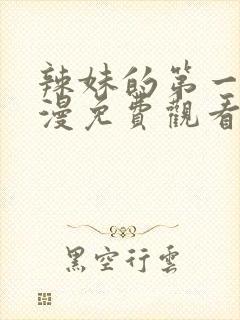 辣妹的第一
漫免費觀看
黑空行雲